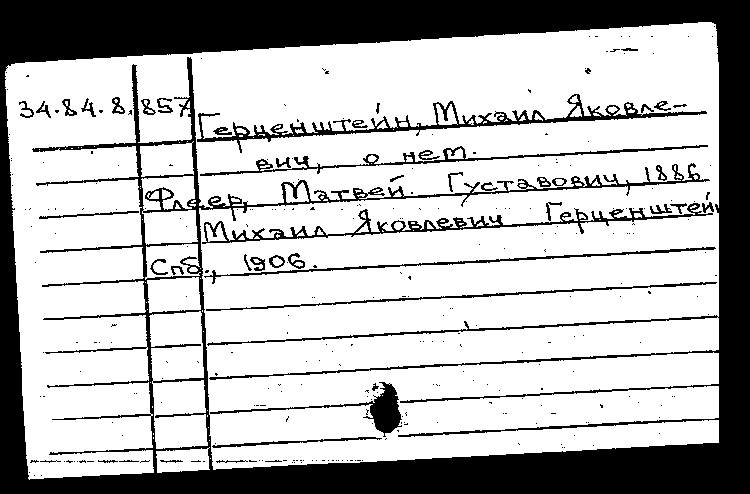 34.84.8.857. Герценштейн, Михаил Яковле-
вич, о нем.
Флеер, Матвей. Густавович, 1886
Михаил Яковлевич Герценштейн
Спб., 1906.